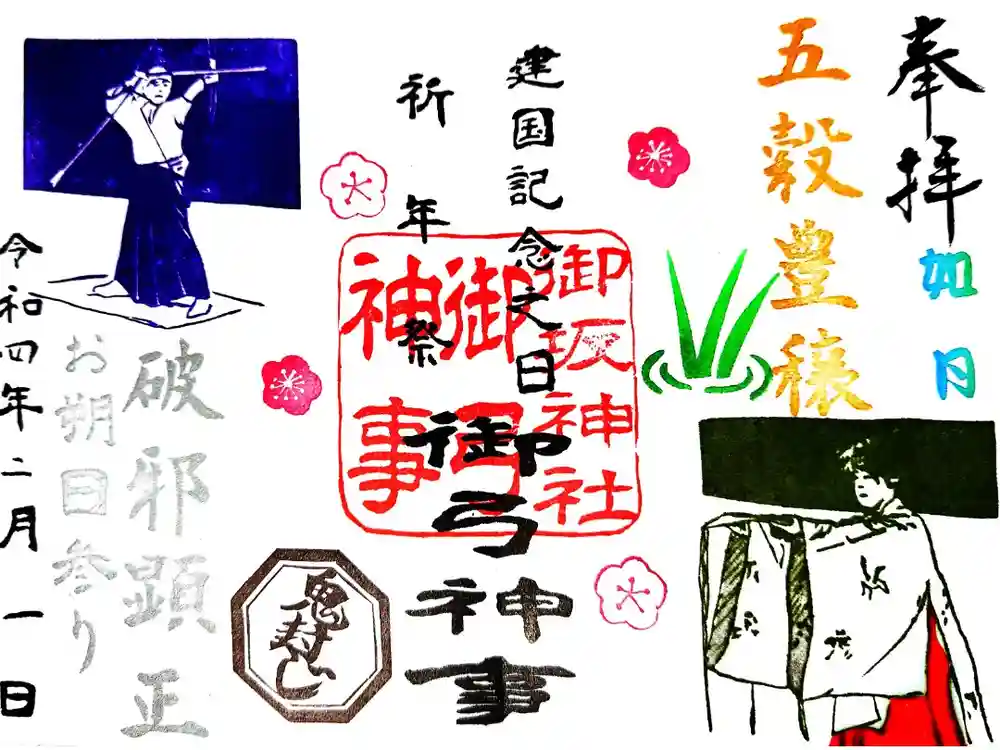 奉拝
如月
五穀豊穣
建国記念之日
祈年祭
御弓神事
御坂神社
御弓
神事
鬼封じ
破邪顕正
お朔日参り
令和四年二月一日